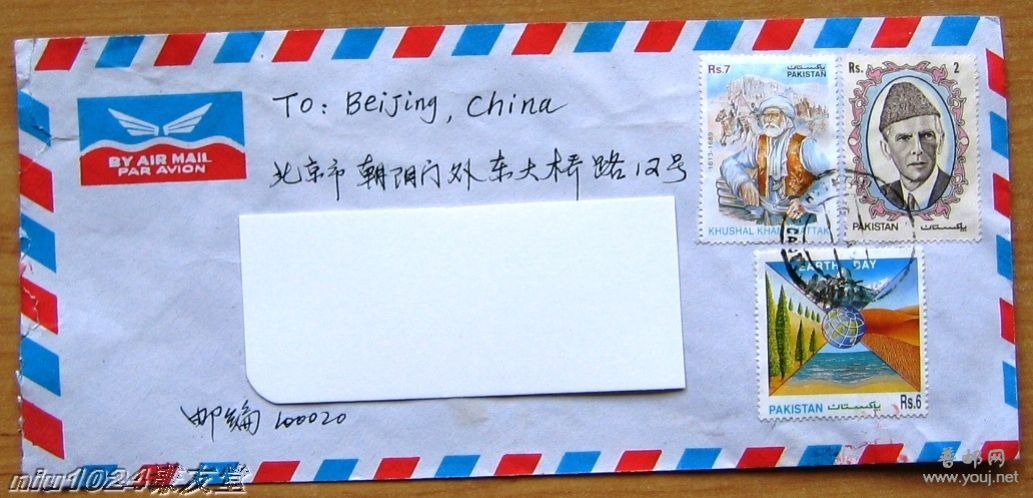 BY AIR MAIL
PAR AVION
TO: Beijing, China
北京市朝阳门外东大桥路12号
邮编100020
Rs.7
پاکستان
PAKISTAN
1613-1689
KHUSHAL KHAN KHATTAK
Rs. 2
PAKISTAN پاکستان
EARTH DAY
PAKISTAN پاکستان Rs.6
niu1024藏友堂
善邮网
www.youj.net